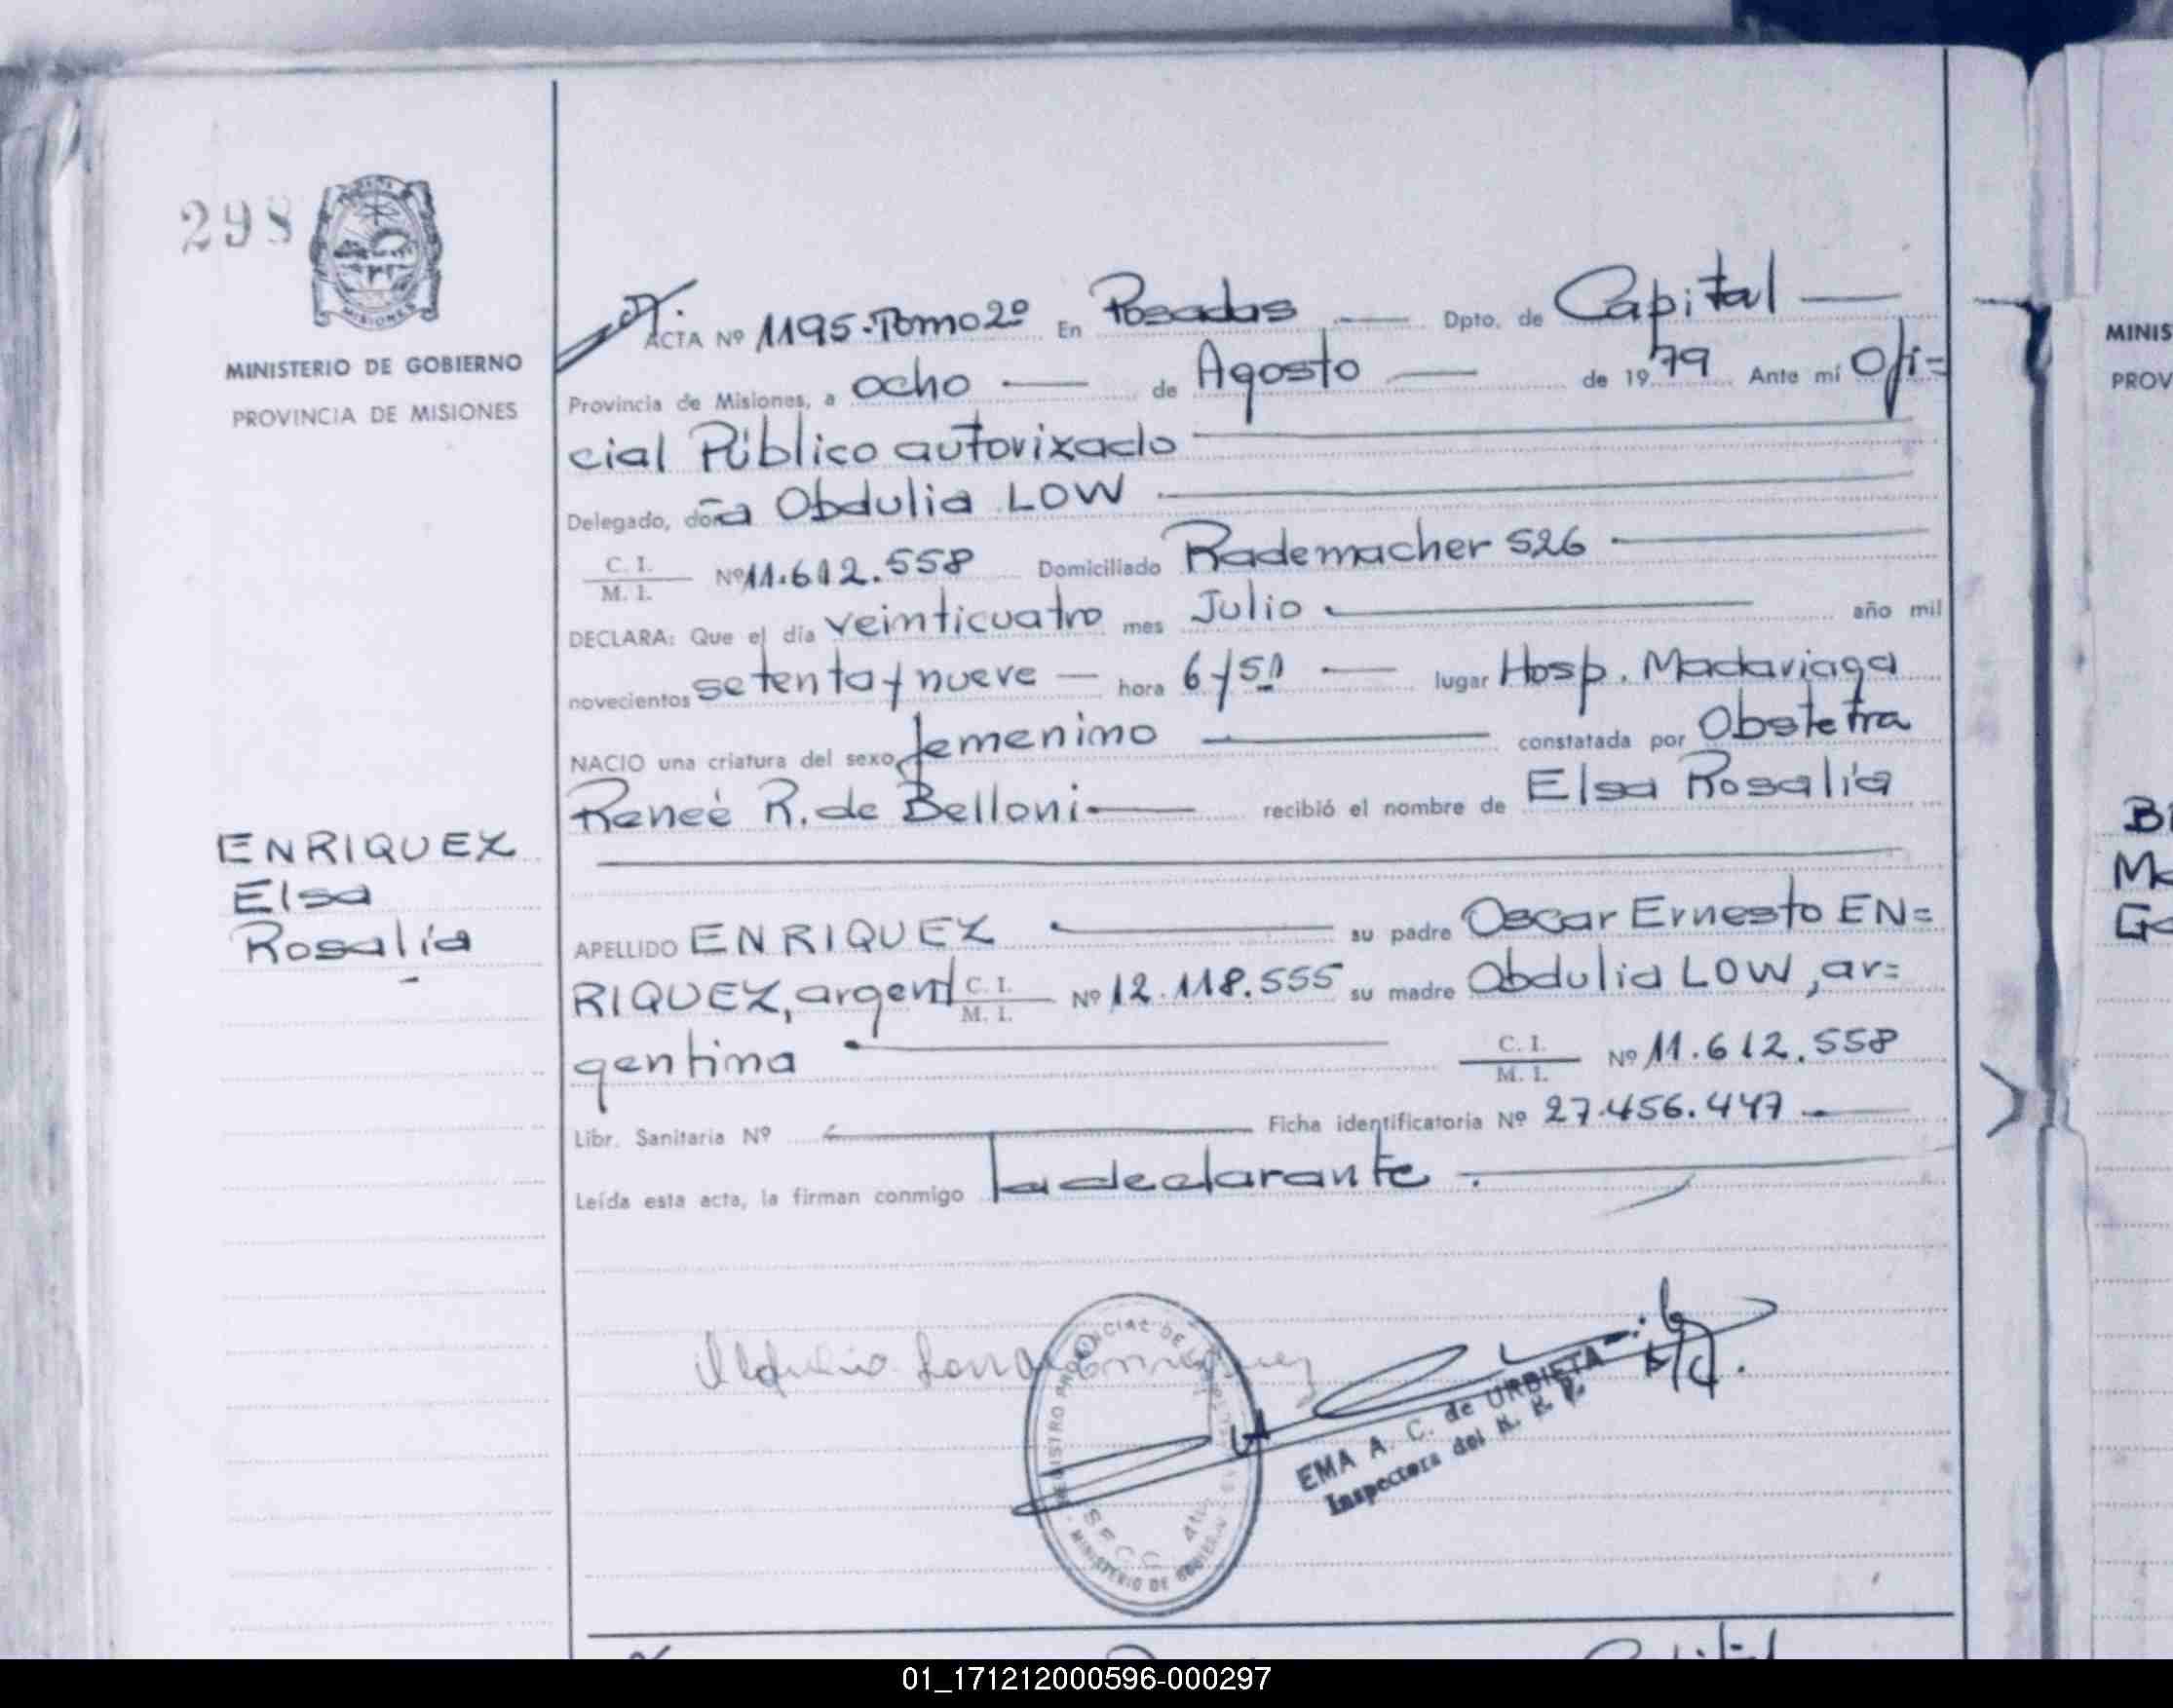 298
MISIONES
MINISTERIO DE GOBIERNO
PROVINCIA DE MISIONES
ENRIQUEZ
Elsa
Rosalía
ACTA Nº 1195-Tomo 2º En Posadas Dpto. de Capital
Provincia de Misiones, a ocho de Agosto de 1979 Ante mí Ofi=
cial Público autorizado
Delegado, doña Obdulia LOW
C. I.
M. I. Nº 11.612.558 Domiciliado Rademacher 526
DECLARA: Que el día veinticuatro mes Julio año mil
novecientos setenta y nueve hora 6 y 50 lugar Hosp. Madariaga
NACIO una criatura del sexo femenino constatada por Obstetra
Reneé R. de Belloni recibió el nombre de Elsa Rosalía
APELLIDO ENRIQUEZ su padre Oscar Ernesto EN=
RIQUEZ, argent C. I. M. I. Nº 12.118.555 su madre Obdulia LOW, ar=
gentina C. I. M. I. Nº 11.612.558
Libr. Sanitaria Nº Ficha identificatoria Nº 27.456.447
Leída esta acta, la firman conmigo la declarante.
REGISTRO PROVINCIAL DE
MINISTERIO DE GOBIERNO
EMA A. C. de URBIETA
Inspectora del R. R. P.
MINIS
PROV
Ma
01_171212000596-000297